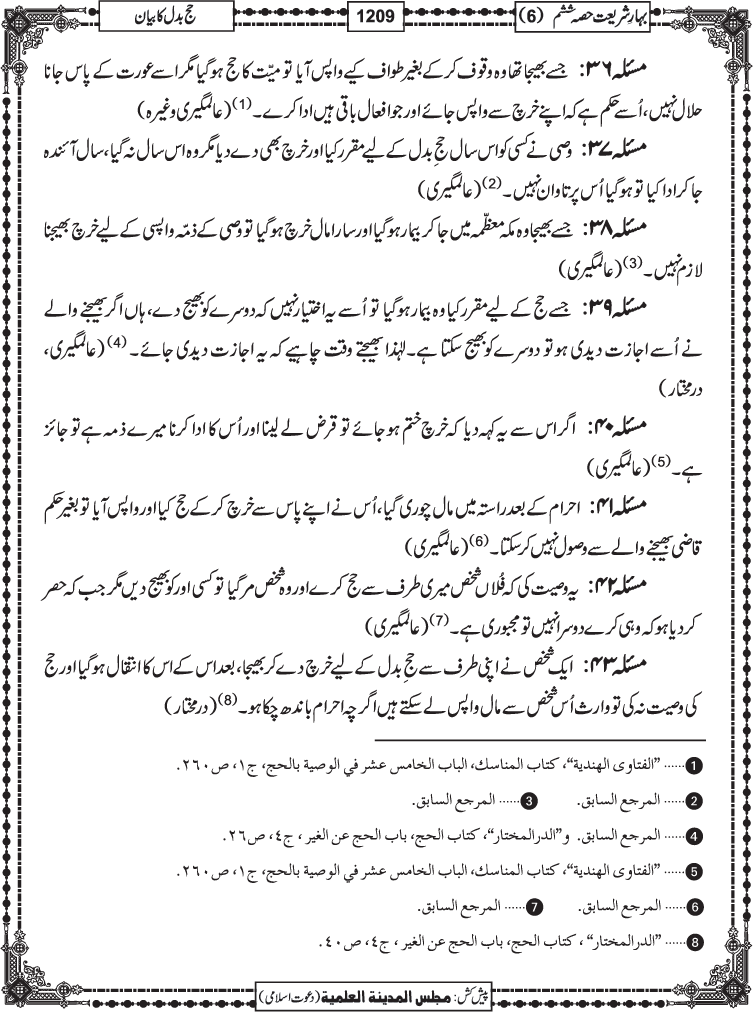 بہارِ شریعت حصہ ششم (6)
1209
حج بدل کا بیان
مسئلہ ۳۶: جسے بھیجا تھا وہ وقوف کر کے بغیر طواف کیے واپس آیا تو میّت کا حج ہوگیا مگر اسے عورت کے پاس جانا
حلال نہیں، اُسے حکم ہے کہ اپنے خرچ سے واپس جائے اور جو افعال باقی ہیں ادا کرے۔ (1) (عالمگیری وغیرہ)
مسئلہ ۳۷: وصی نے کسی کو اس سال حجِ بدل کے لیے مقرر کیا اور خرچ بھی دے دیا مگر وہ اس سال نہ گیا، سال آئندہ
جا کر ادا کیا تو ہوگیا اُس پر تاوان نہیں۔ (2) (عالمگیری)
مسئلہ ۳۸: جسے بھیجا وہ مکہ معظّمہ میں جا کر بیمار ہوگیا اور سارا مال خرچ ہوگیا تو وصی کے ذمّہ واپسی کے لیے خرچ بھیجنا
لازم نہیں۔ (3) (عالمگیری)
مسئلہ ۳۹: جسے حج کے لیے مقرر کیا وہ بیمار ہوگیا تو اُسے یہ اختیار نہیں کہ دوسرے کو بھیج دے، ہاں اگر بھیجنے والے
نے اُسے اجازت دیدی ہو تو دوسرے کو بھیج سکتا ہے۔ لہٰذا بھیجتے وقت چاہیے کہ یہ اجازت دیدی جائے۔ (4) (عالمگیری،
درمختار)
مسئلہ ۴۰: اگر اس سے یہ کہہ دیا کہ خرچ ختم ہو جائے تو قرض لے لینا اور اُس کا ادا کرنا میرے ذمہ ہے تو جائز
ہے۔ (5) (عالمگیری)
مسئلہ ۴۱: احرام کے بعد راستہ میں مال چوری گیا، اُس نے اپنے پاس سے خرچ کر کے حج کیا اور واپس آیا تو بغیر حکم
قاضی بھیجنے والے سے وصول نہیں کر سکتا۔ (6) (عالمگیری)
مسئلہ ۴۲: یہ وصیت کی کہ فُلاں شخص میری طرف سے حج کرے اور وہ شخص مر گیا تو کسی اور کو بھیج دیں مگر جب کہ حصر
کر دیا ہو کہ وہی کرے دوسرا نہیں تو مجبوری ہے۔ (7) (عالمگیری)
مسئلہ ۴۳: ایک شخص نے اپنی طرف سے حجِ بدل کے لیے خرچ دے کر بھیجا، بعد اس کے اس کا انتقال ہوگیا اور حج
کی وصیت نہ کی تو وارث اُس شخص سے مال واپس لے سکتے ہیں اگرچہ احرام باندھ چکا ہو۔ (8) (درمختار)
1 ...... "الفتاوى الهندية"، كتاب المناسك، الباب الخامس عشر في الوصية بالحج، ج١، ص٢٦٠.
2 ...... المرجع السابق. 3 ...... المرجع السابق.
4 ...... المرجع السابق. و"الدرالمختار"، كتاب الحج، باب الحج عن الغير، ج٤، ص٢٦.
5 ...... "الفتاوى الهندية"، كتاب المناسك، الباب الخامس عشر في الوصية بالحج، ج١، ص٢٦٠.
6 ...... المرجع السابق. 7 ...... المرجع السابق.
8 ...... "الدرالمختار"، كتاب الحج، باب الحج عن الغير، ج٤، ص٤٠.
پیش کش: مجلس المدینۃ العلمیۃ (دعوتِ اسلامی)